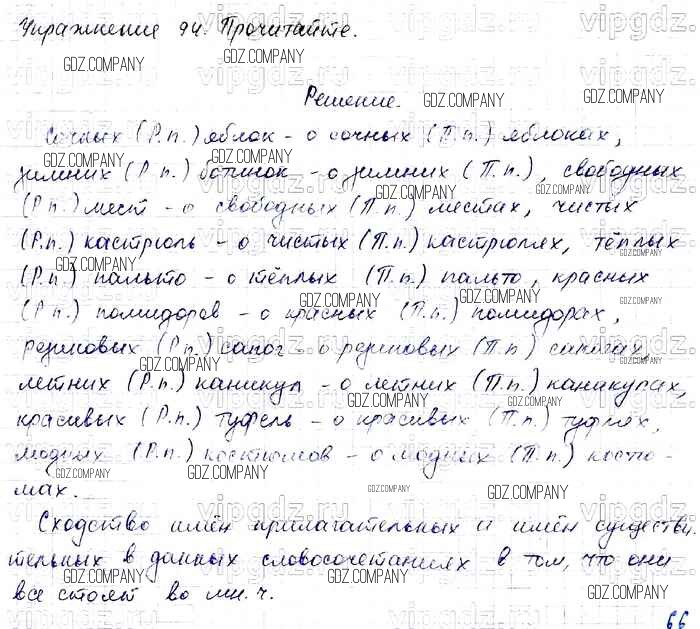 Упражнение 94. Прочитайте.
Решение.
Сочных (Р.п.) яблок – о сочных (П.п.) яблоках,
зимних (Р.п.) ботинок – о зимних (П.п.), свободных
(Р.п.) мест – о свободных (П.п.) местах, чистых
(Р.п.) кастрюль – о чистых (П.п.) кастрюлях, тёплых
(Р.п.) пальто – о тёплых (П.п.) пальто, красных
(Р.п.) помидоров – о красных (П.п.) помидорах,
резиновых (Р.п.) сапог – о резиновых (П.п) сапогах,
летних (Р.п.) каникул – о летних (П.п.) каникулах,
красивых (Р.п.) туфель – о красивых (П.п.) туфлях,
модных (Р.п.) костюмов – о модных (П.п.) костю-
мах.
Сходство имён прилагательных и имён существи-
тельных в данных словосочетаниях в том, что они
все стоят во мн.ч.
66